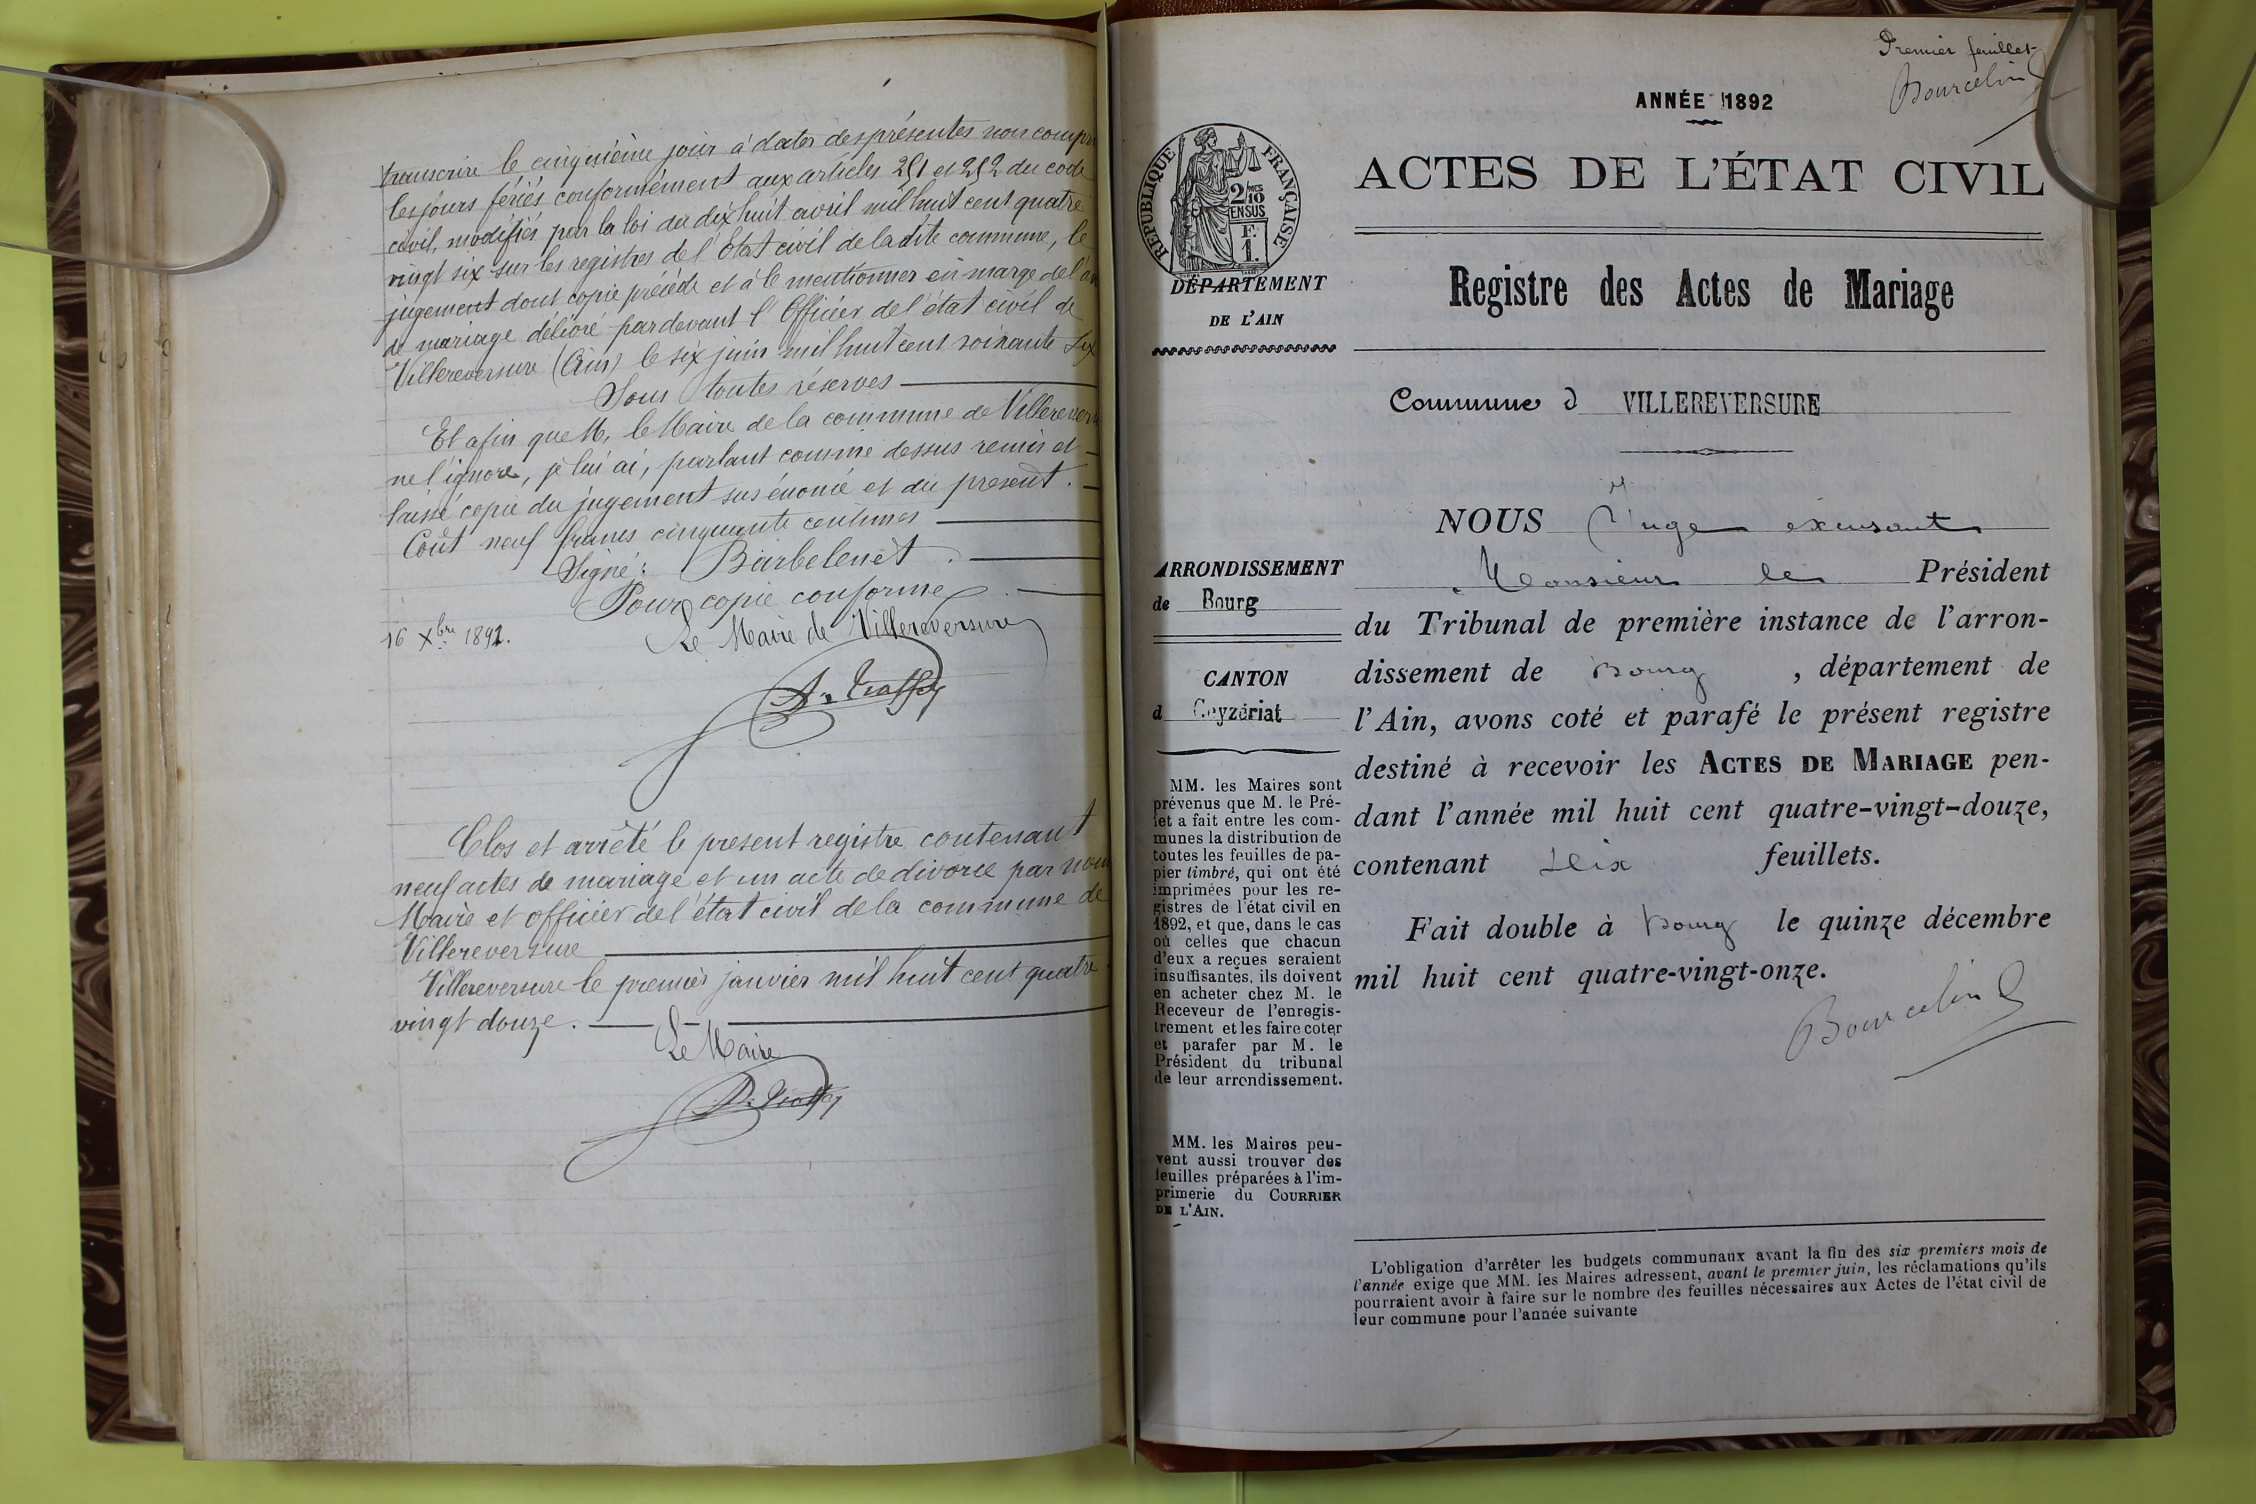 transcrire le cinquième jour à dater des présentes non compris
les jours fériés conformément aux articles 251 et 252 du code
civil, modifiés par la loi du dix huit avril mil huit cent quatre
vingt six sur les registres de l'Etat civil de la dite commune, le
jugement dont copie précède et à le mentionner en marge de l'
de mariage délivré pardevant l'Officier de l'état civil de
Villereversure (Ain) le six juin mil huit cent soixante dix
Sous toutes réserves
Et afin que M. le Maire de la commune de Villerever
ne l'ignore, je lui ai, parlant comme dessus remis et
laissé copie du jugement sus énoncé et du present.
Coût neuf francs cinquante centimes
Signé: Barbelenet.
Pour copie conforme.
16 Xbre 1891.
Le Maire de Villereversure
Clos et arrêté le present registre contenant
neuf actes de mariage et un acte de divorce par nous
Maire et officier de l'état civil de la commune de
Villereversure
Villereversure le premier janvier mil huit cent quatre
vingt douze.
Le Maire
Premier feuillet
Bourcelin
ANNÉE 1892
ACTES DE L'ÉTAT CIVIL
RÉPUBLIQUE FRANÇAISE
2/10
EN SUS
F.
1.
DÉPARTEMENT
DE L'AIN
Registre des Actes de Mariage
Commune d VILLEREVERSURE
NOUS Juge excusant
Monsieur le Président
du Tribunal de première instance de l'arron-
dissement de Bourg, département de
l'Ain, avons coté et parafé le présent registre
destiné à recevoir les ACTES DE MARIAGE pen-
dant l'année mil huit cent quatre-vingt-douze,
contenant dix feuillets.
Fait double à Bourg le quinze décembre
mil huit cent quatre-vingt-onze.
Bourcelin
ARRONDISSEMENT
de Bourg
CANTON
d Ceyzériat
MM. les Maires sont
prévenus que M. le Pré-
fet a fait entre les com-
munes la distribution de
toutes les feuilles de pa-
pier timbré, qui ont été
imprimées pour les re-
gistres de l'état civil en
1892, et que, dans le cas
où celles que chacun
d'eux a reçues seraient
insuffisantes, ils doivent
en acheter chez M. le
Receveur de l'enregis-
trement et les faire coter
et parafer par M. le
Président du tribunal
de leur arrondissement.
MM. les Maires peu-
vent aussi trouver des
feuilles préparées à l'im-
primerie du COURRIER
DE L'AIN.
L'obligation d'arrêter les budgets communaux avant la fin des six premiers mois de
l'année exige que MM. les Maires adressent, avant le premier juin, les réclamations qu'ils
pourraient avoir à faire sur le nombre des feuilles nécessaires aux Actes de l'état civil de
leur commune pour l'année suivante